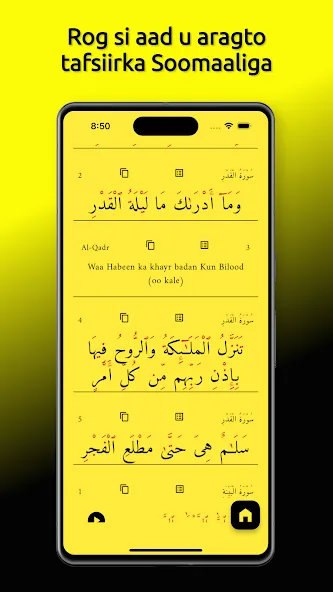 Rog si aad u aragto
tafsiirka Soomaaliga
8:50
2 سُورَةُ الْقَدْرِ
وَمَآ أَدْرَىٰكَ مَا لَيْلَةُ ٱلْقَدْرِ
Al-Qadr 3
Waa Habeen ka khayr badan Kun Bilood
(oo kale)
4 سُورَةُ الْقَدْرِ
تَنَزَّلُ ٱلْمَلَـٰٓئِكَةُ وَٱلرُّوحُ فِيهَا
بِإِذْنِ رَبِّهِم مِّن كُلِّ أَمْرٍ
5 سُورَةُ الْقَدْرِ
سَلَـٰمٌ هِىَ حَتَّىٰ مَطْلَعِ ٱلْفَجْرِ
1 سُورَةُ الْبَيِّنَةِ